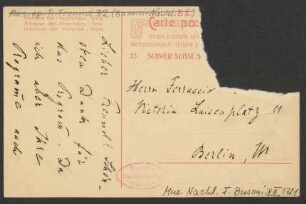 Mus. ep. F. Busoni 32 (Busoni-Nachl. B II)
Carte postale
SCHWEIZ SUISSE S
Lieber Freund! Schön-
sten Dank für
das Program. Da
ich aber Ihre
Programe auch
Herrn Ferruccio
Victoria Luisenplatz 11
Berlin, W
Mus. Nachl. F. Busoni B II, 1721